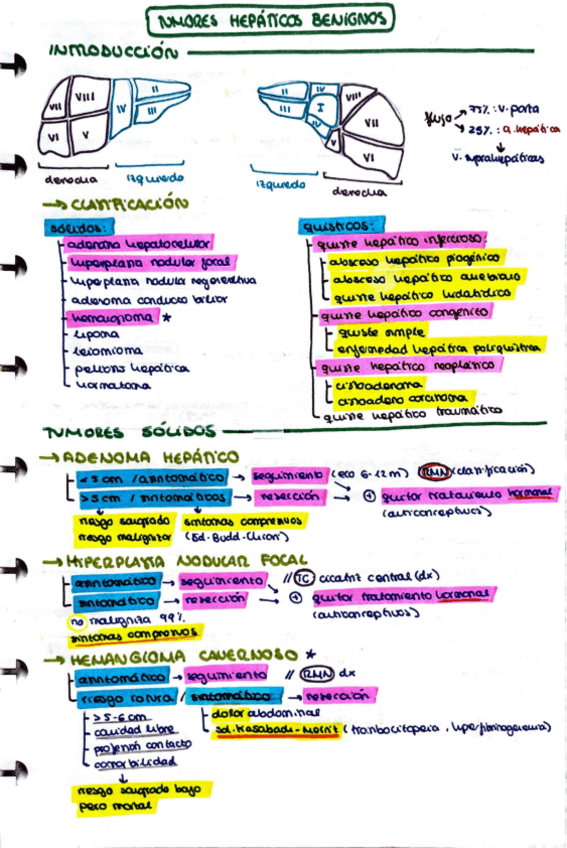 TUMORES HEPÁTICOS BENIGNOS
INTRODUCCIÓN
VII VIII IV II III VI V
II IV III I VIII IV V VII VI
flujo → 75% : v. porta
→ 25% : a. hepática
v. suprahepáticas
derecha izquierdo
izquierdo derecha
→ CLASIFICACIÓN
sólidos:
adenoma hepatocelular
hiperplasia nodular focal
hiperplasia nodular regenerativa
adenoma conducto biliar
hemangioma *
lipoma
leiomioma
peliosis hepática
hamartoma
quísticos:
quiste hepático infeccioso:
absceso hepático piogénico
absceso hepático amebiano
quiste hepático hidatídico
quiste hepático congénito
quiste simple
enfermedad hepática poliquística
quiste hepático neoplásico
cistoadenoma
cistoadenocarcinoma
quiste hepático traumático
TUMORES SÓLIDOS
→ ADENOMA HEPÁTICO
< 5 cm / asintomático → seguimiento (eco 6-12 m) RMN (clasificación)
> 5 cm / sintomáticos → resección → + quitar tratamiento hormonal
(anticonceptivos)
riesgo sangrado síntomas compresivos
riesgo malignizar (Sd. Budd-Chiari)
→ HIPERPLASIA NODULAR FOCAL
asintomático → seguimiento // TC cicatriz central (dx)
sintomático → resección → + quitar tratamiento hormonal
no maligniza 99% (anticonceptivos)
síntomas compresivos
→ HEMANGIOMA CAVERNOSO *
asintomático → seguimiento // RMN dx
riesgo rotura / sintomático → resección
> 5-6 cm
cavidad libre
profesión contacto
comorbilidad
dolor abdominal
sd. Kasabach-Merrit (trombocitopenia, hipofibrinogenemia)
riesgo sangrado bajo
pero mortal